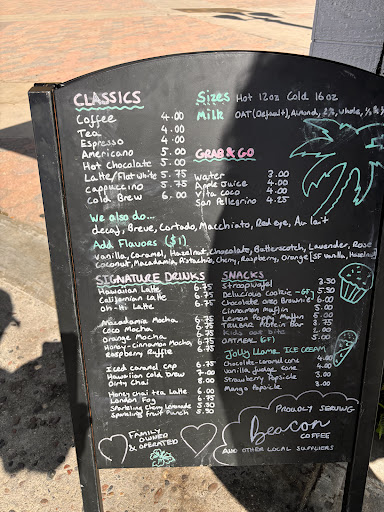 CLASSICS
Coffee 4.00
Tea 4.00
Espresso 4.00
Americano 5.00
Hot Chocolate 5.00
Latte/Flat White 5.75
Cappuccino 5.75
Cold Brew 6.00
Sizes Hot 12oz Cold 16oz
Milk OAT (Default), Almond, 2%, Whole,
GRAB & GO
Water 3.00
Apple Juice 4.00
Vita Coco 4.00
San Pellegrino 4.25
We also do...
decaf, Breve, Cortado, Macchiato, Red eye, Au lait
Add Flavors ($1)
Vanilla, Caramel, Hazelnut, Chocolate, Butterscotch, Lavender, Rose
Coconut, Macadamia, Pistachio, Cherry, Raspberry, Orange [SF Vanilla, Hazelnut]
SIGNATURE DRINKS
Hawaiian Latte 6.75
Californian Latte 6.75
Oh-Hi Latte 6.75
Macadamia Mocha 6.75
Coco Mocha 6.75
Orange Mocha 6.75
Honey-Cinnamon Mocha 6.75
Raspberry Ruffle 6.75
Iced Caramel Cap 6.75
Hawaiian Cold brew 7.00
Dirty Chai 8.00
Honey chai tea Latte 6.00
London Fog 6.75
Sparkling Cherry Lemonade 5.50
Sparkling Fruit Punch 5.50
SNACKS
Stroopwafel 2.50
Delicious Cookie -GF 5.50
Chocolate oreo Brownie
Cinnamon Muffin
Lemon Poppy Muffin
TRUBAR Protein Bar
Kids oat bits
OATMEAL (GF)
Jolly Llama ICE CREAM
Chocolate-caramel cone
Vanilla fudge cone 4.00
Strawberry Popsicle 3.00
Mango Popsicle 3.00
FAMILY
OWNED
& OPERATED
PROUDLY SERVING
Beacon
COFFEE
AND OTHER LOCAL SUPPLIERS